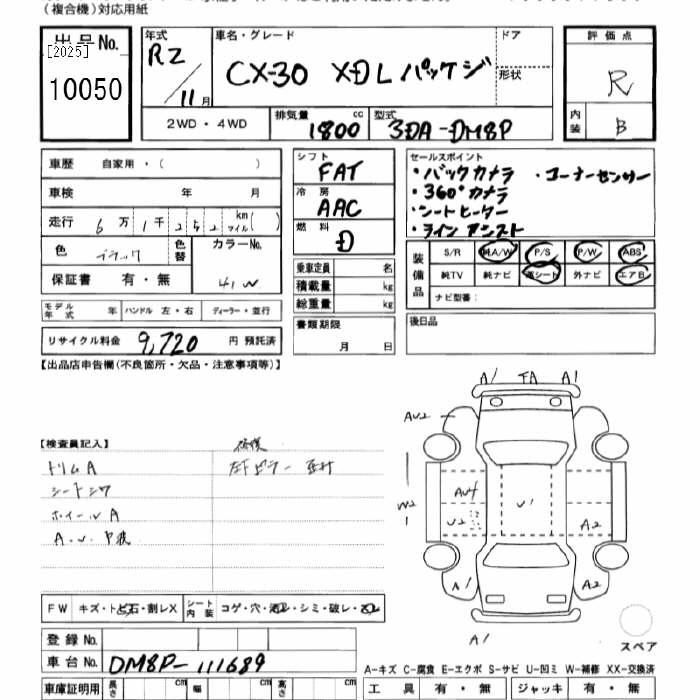 (複合機)対応用紙
出品No.
[2025]
10050
年式 R2/11月
車名・グレード CX-30 XDLパッケジ
ドア
形状
評価点 R
内装 B
2WD・4WD
排気量 1800 cc
型式 3DA-DM8P
車歴 自家用・( )
車検 年 月
走行 6万1千252 km マイル( )
色 ブラック
色替
カラーNo. 41W
保証書 有・無
モデル年式 年
ハンドル 左・右
ディーラー・並行
リサイクル料金 9,720 円 預託済
シフト FAT
冷房 AAC
燃料 D
乗車定員 名
積載量 kg
総重量 kg
書類期限
月 日
セールスポイント
・バックカメラ ・コーナーセンサー
・360°カメラ
・シートヒーター
・ラインアシスト
装備品
S/R 純A/W P/S P/W ABS
純TV 純ナビ 革シート 外ナビ エアB
ナビ型番:
後日品
【出品店申告欄(不良箇所・欠品・注意事項等)】
【検査員記入】
トリムA
シートシワ
ホイールA
修復
A1 FA A1
AU2
W2
AU4
U2
U1
A2
A1
A2
A1
FW キズ・トビ石・割レX
シート内装 コゲ・穴・汚レ・シミ・破レ・スレ
登録No.
車台No. DM8P-111689
車庫証明用 長さ cm 幅 cm 高さ cm
スペア
A-キズ C-腐食 E-エクボ S-サビ U-凹ミ W-補修 XX-交換済
工具 有・無
ジャッキ 有・無